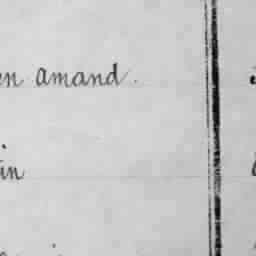 en amand.
in